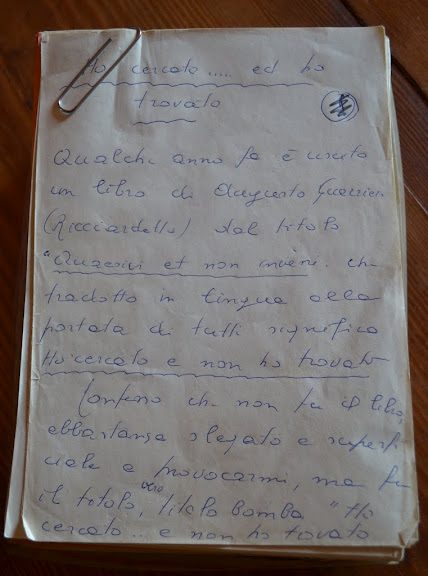 Ho cercato..... ed ho
trovato
Qualche anno fa è uscito
un libro di Augusto Guerriero
(Ricciardetto) dal titolo
"Quaesivi et non inveni. che
tradotto in lingua alla
portata di tutti significa
Ho cercato e non ho trovato
Confesso che non fu il libro,
abbastanza slegato e superfi
ciale a provocarmi, ma fu
il titolo, vero titolo bomba "Ho
cercato... e non ho trovato